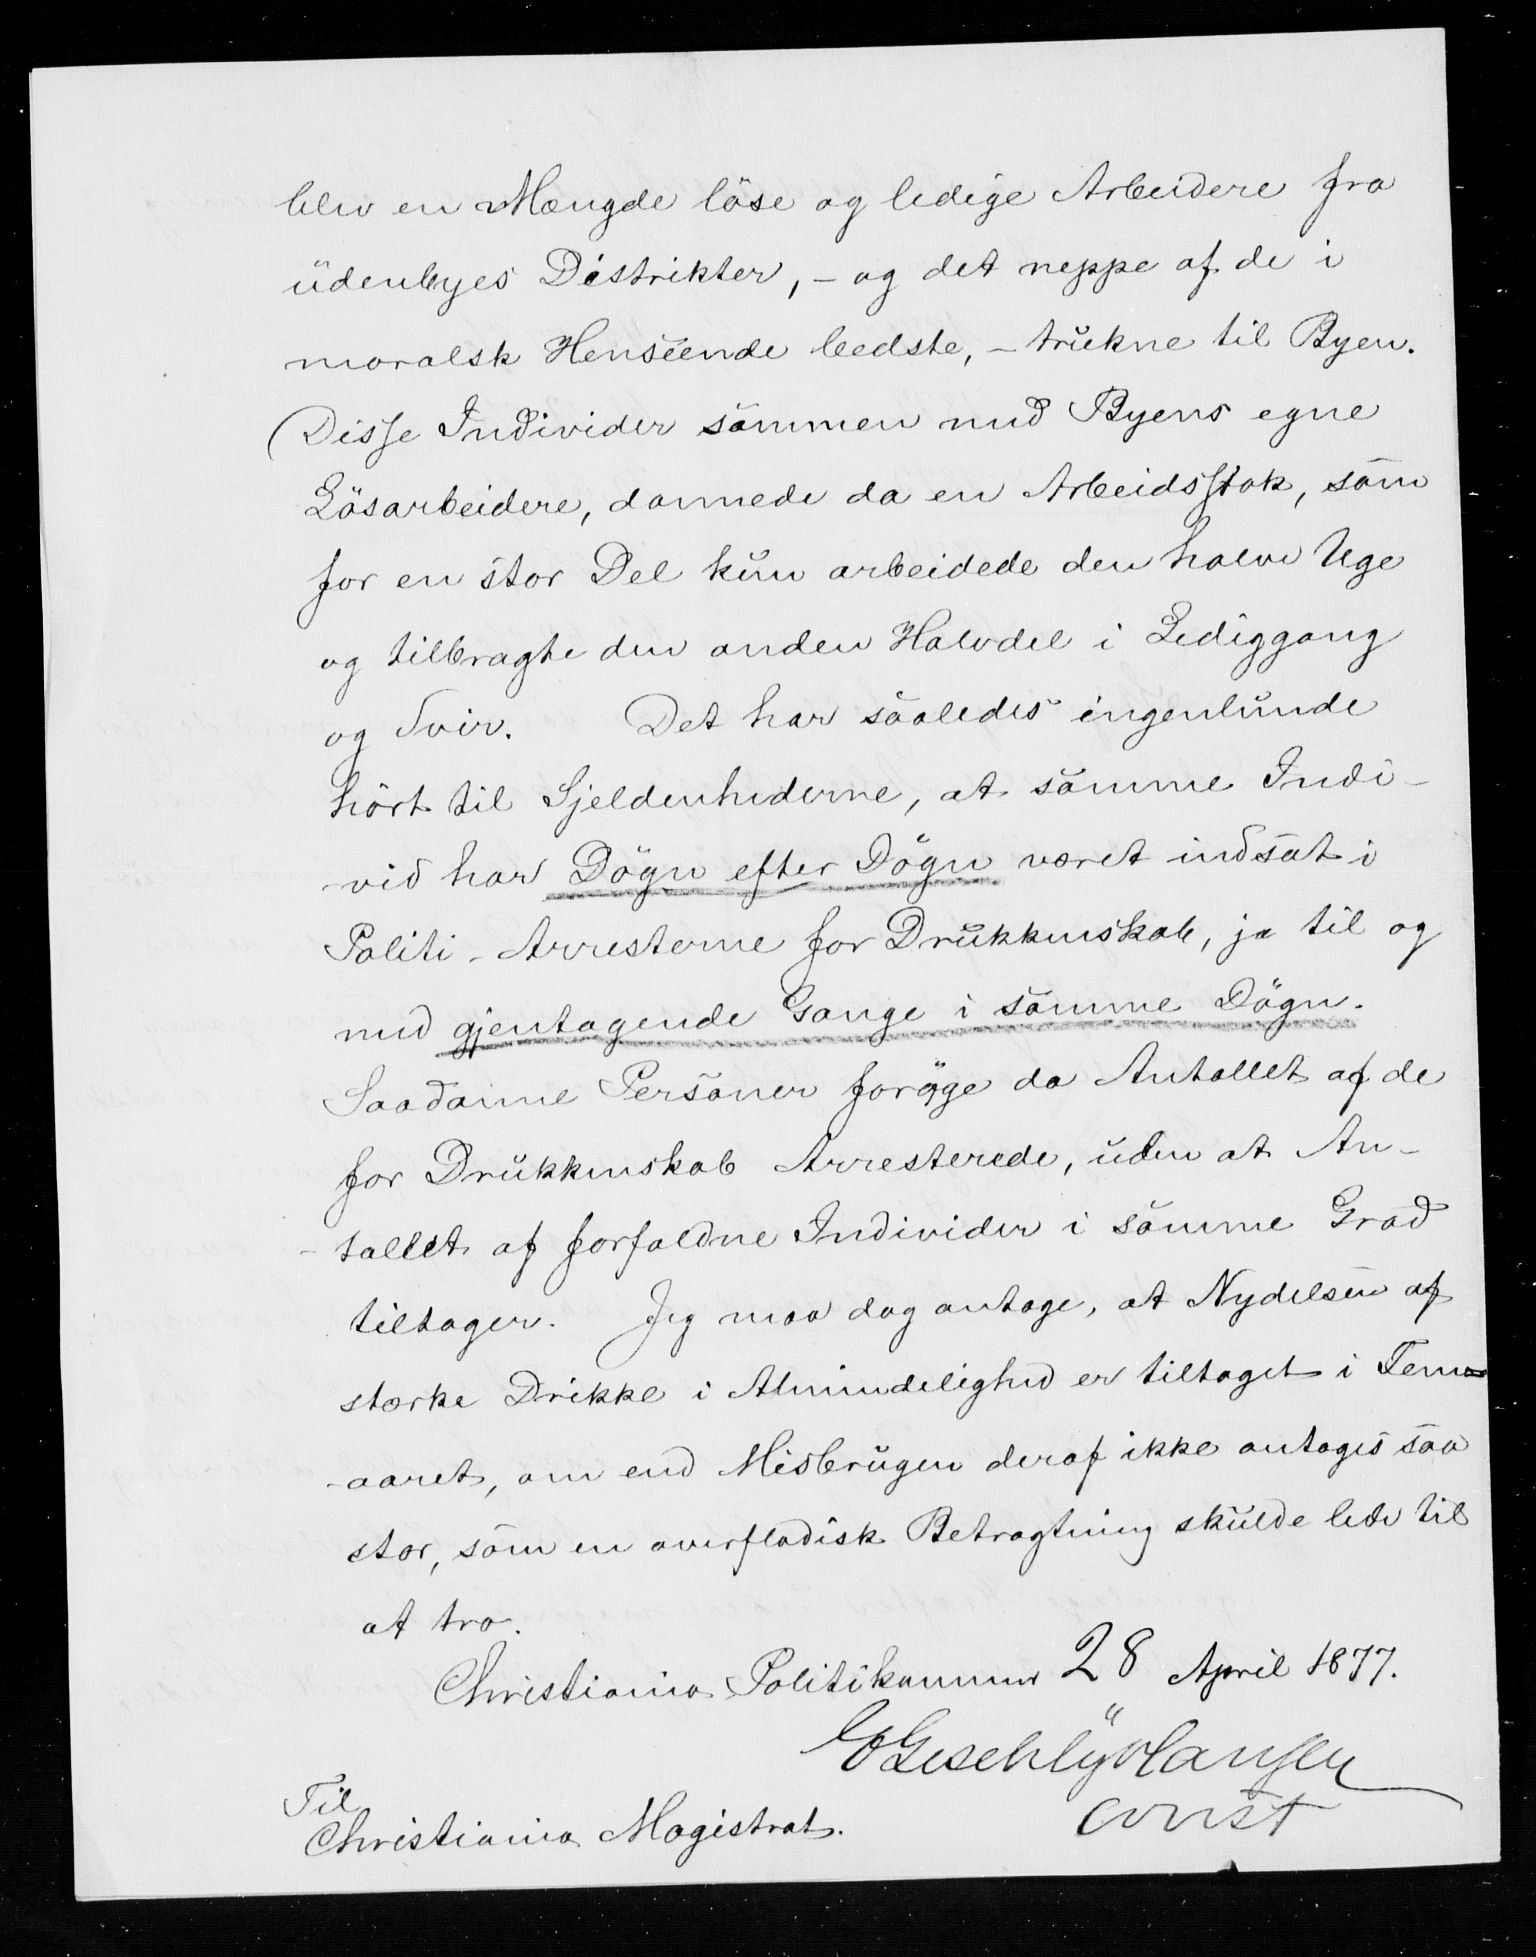 blev en Mængde löse og ledige Arbeidere fra
udenbyes Distrikter, – og det neppe af de i
moralsk Henseende bedste, – trukne til Byen.
Disse Individer sammen med Byens egne
Lösarbeidere, dannede da en Arbeidsstok, som
for en stor Del kun arbeidede den halve Uge
og tilbragte den anden Halvdel i Lediggang
og Svir. Det har saaledes ingenlunde
hört til Sjeldenhederne, at samme Indi-
vid har Dögn efter Dögn været indsat i
Politi-Arresterne for Drukkenskab, ja til og
med gjentagende Gange i samme Dögn.
Saadanne Personer foröge da Antallet af de
for Drukkenskab Arresterede, uden at An-
-tallet af forfaldne Individer i samme Grad
tiltager. Jeg maa dog antage, at Nydelsen af
stærke Drikke i Almindelighed er tiltaget i Fem-
-aaret, om end Misbrugen deraf ikke antages saa
stor, som en overfladisk Betragtning skulde lede til
at tro.
Christiania Politikammer 28 April 1877.
Hansen
const
Til
Christiania Magistrat.